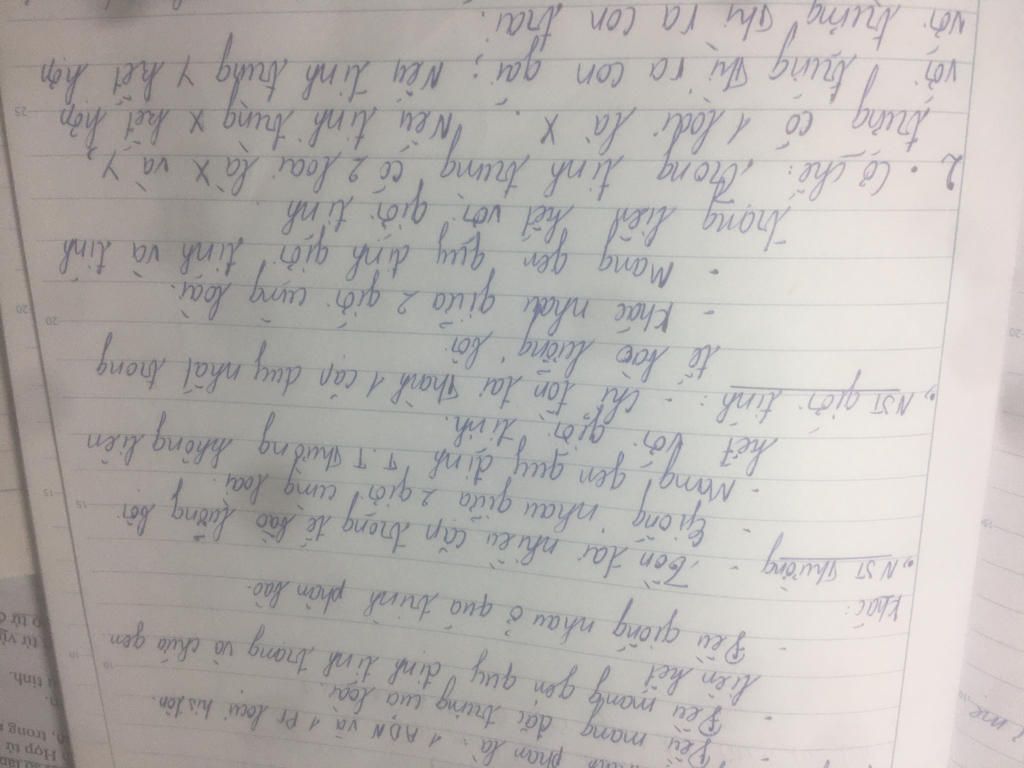 phần là: 1 ADN và 1 Pr loại histôn.
- Đều mang đặc trưng của loài.
- Đều mang gen quy định tính trạng và chứa gen
liên kết
- Đều giống nhau ở quá trình phân bào.
khác:
•, NST thường - Tồn tại nhiều cặp trong tế bào lưỡng bội
- Giống nhau giữa 2 giới cùng loài.
- Mang gen quy định T.T thường không liên
kết với giới tính.
•, NST giới tính: - Chỉ tồn tại thành 1 cặp duy nhất trong
tế bào lưỡng bội
- khác nhau giữa 2 giới cùng loài.
- Mang gen quy định giới tính và tính
trạng liên kết với giới tính.
2. Cơ chế: Trong tinh trùng có 2 loại là X và Y,
trứng có 1 loại là X. Nếu tinh trùng X kết hợp
với trứng thì ra con gái; Nếu tinh trùng Y kết hợp
với trứng thì ra con trai.